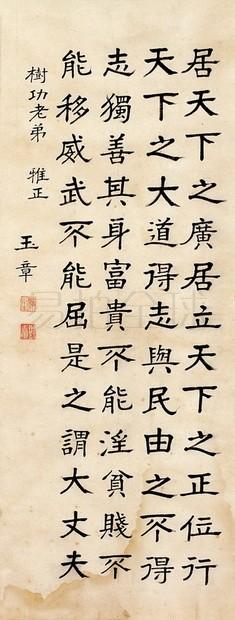 居天下之廣居立天下之正位行
天下之大道得志與民由之不得
志獨善其身富貴不能淫貧賤不
能移威武不能屈是之謂大丈夫
樹功老弟 雅正
玉章
易拍全球